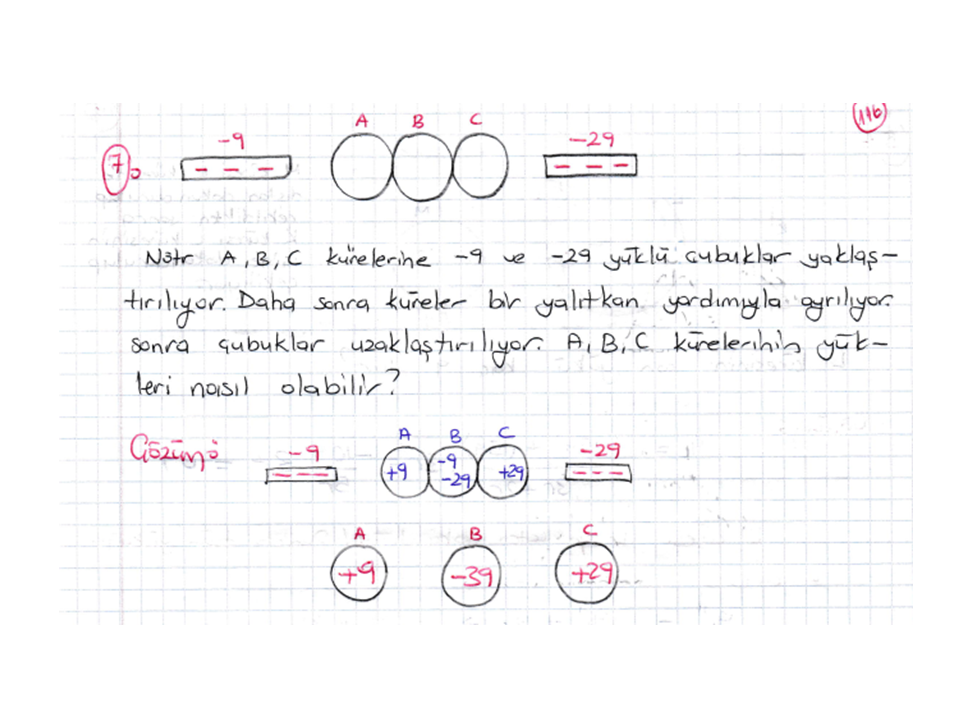 116
A B C
-9 -29
7.
Nötr A, B, C kürelerine -9 ve -29 yüklü çubuklar yaklaş-
tırılıyor. Daha sonra küreler bir yalıtkan yardımıyla ayrılıyor.
sonra çubuklar uzaklaştırılıyor. A, B, C kürelerinin yük-
leri nasıl olabilir?
Çözüm:
A B C
-9 -29
+9 -9 +29
-29
A B C
+9 -39 +29